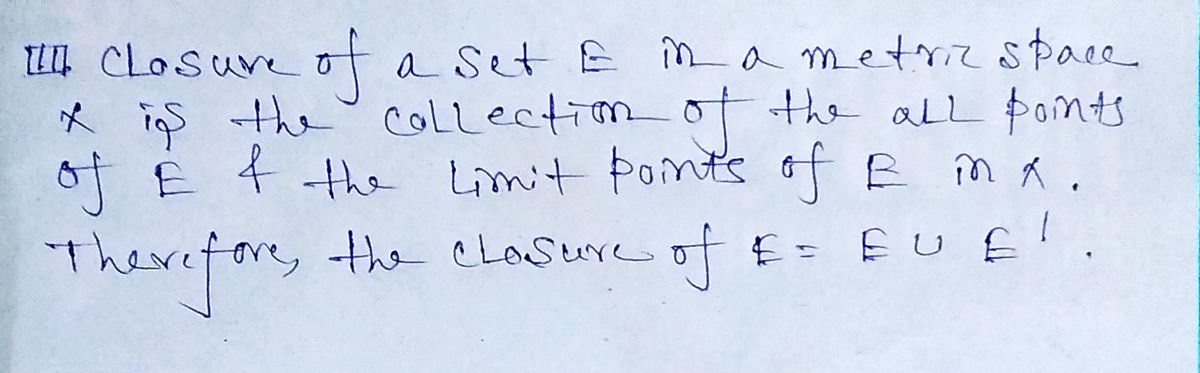 III Closure of a set E in a metric space
X is the collection of the all points
of E & the limit points of E in X.
Therefore, the closure of E = E ∪ E'.